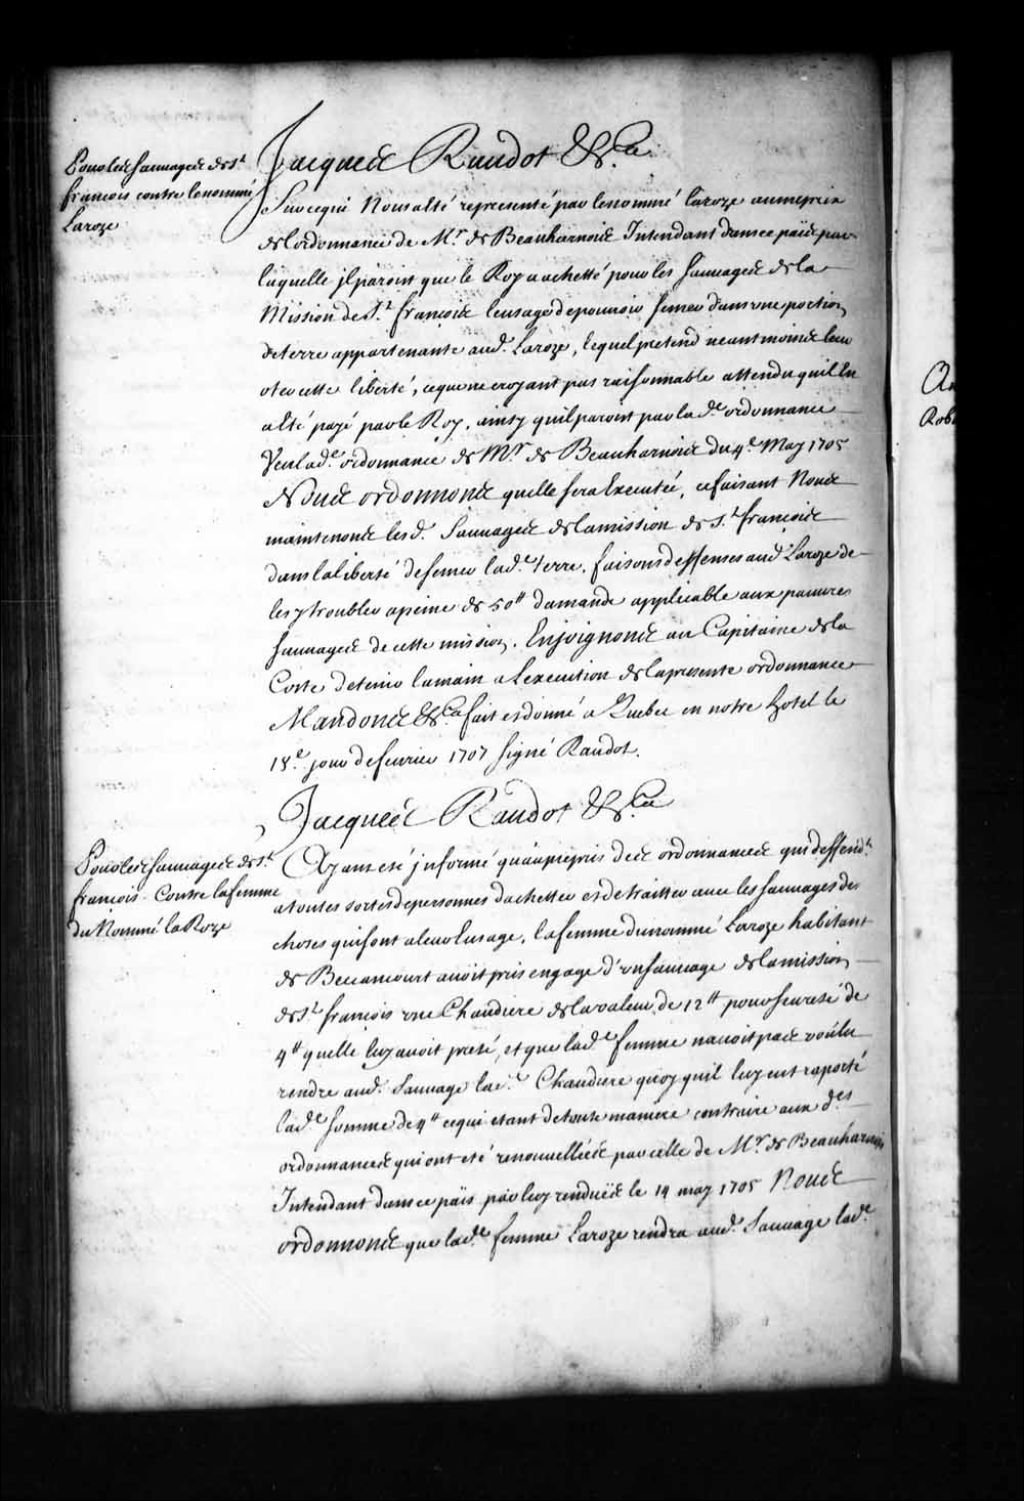 Pour les Sauvages de St
françois contre le nommé
Laroze
Jacques Raudot &c.a
Sur ce qui Nous a esté representé par le nommé Laroze au mepris
de l'ordonnance de M.r de Beauharnois Intendant dans ce païs par
laquelle il paroist que le Roy a achetté pour les Sauvages de la
Mission de S.t françois l'usage de pouvoir semer dans une portion
de terre appartenante aud. Laroze, lequel pretend neantmoins leur
oter cette liberté, ce que ne croyant pas raisonnable attendu qu'il lui
a esté payé par le Roy, ainsy qu'il paroist par la d.e ordonnance
Veu lad.e ordonnance de M.r de Beauharnois du 4.e May 1705
Nous ordonnons quelle sera Executée, ce faisant Nous
maintenons les d. Sauvages de la mission de S.t françois
dans la liberté de semer lad.e terre, faisons deffenses aud. Laroze de
les y troubler a peine de 50tt damande applicable aux pauvres
Sauvages de cette mission. Enjoignons au Capitaine de la
Coste de tenir la main a lexecution de la presente ordonnance
Mandons &c.a fait et donné a Quebec en notre hotel le
18.e jour de feurier 1707 signé Raudot.
Jacques Raudot &c.a
Pour les Sauvages de St
françois - Contre la femme
du Nommé la Roze
Ayant eté jnformé qu'au mepris des ordonnances qui deffend.t
a toutes sortes de personnes d'achetter et de traitter avec les Sauvages des
choses qui sont a leur usage, la femme du nommé Laroze habitant
de Becancourt auoit pris en gage d'un sauuage de la mission
de St françois une Chaudiere de la valeur de 12tt pour seureté de
4tt quelle luy auoit preté, et que lad.e femme n'auoit pas voulu
rendre aud. Sauuage lad.e Chaudiere quoy quil luy eut raporté
lad.e somme de 4tt ce qui etant de toute maniere contraire aux d.es
ordonnances qui ont eté renouvellées par celle de M.r de Beauharnois
Intendant dans ce païs par luy renduës le 14 may 1705 Nous
ordonnons que lad.e femme Laroze rendra aud. Sauuage lad.e